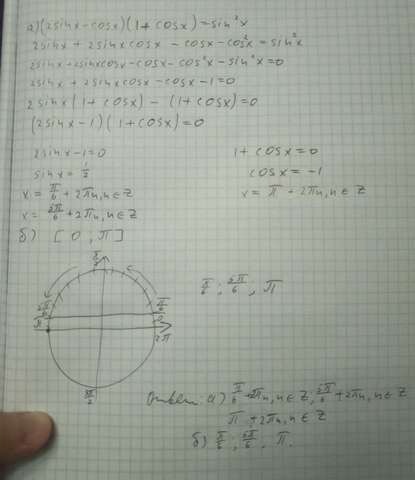 а) (2sinx-cosx)(1+cosx)=sin²x
2sinx+2sinxcosx-cosx-cos²x=sin²x
2sinx+2sinxcosx-cosx-cos²x-sin²x=0
2sinx+2sinxcosx-cosx-1=0
2sinx(1+cosx)-(1+cosx)=0
(2sinx-1)(1+cosx)=0
2sinx-1=0
sinx=1/2
x=π/6+2πn,n∈Z
x=5π/6+2πn,n∈Z
1+cosx=0
cosx=-1
x=π+2πn,n∈Z
б) [0;π]
π/2
5π/6
π/6
π
0
2π
3π/2
π/6; 5π/6, π
Ответ: а) π/6+2πn,n∈Z; 5π/6+2πn,n∈Z
π+2πn,n∈Z
б) π/6; 5π/6; π.